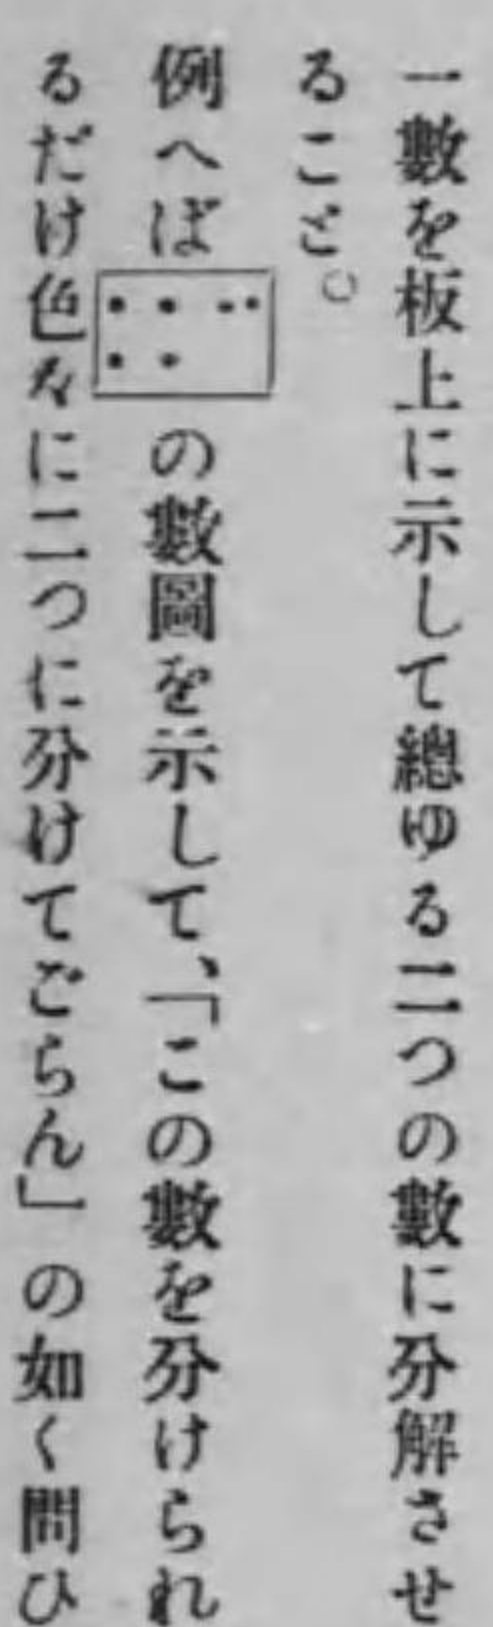 一數を板上に示して總ゆる二つの數に分解させ
ること。
例へばの數圖を示して、「この數を分けられ
るだけ色々に二つに分けてごらん」の如く問ひ